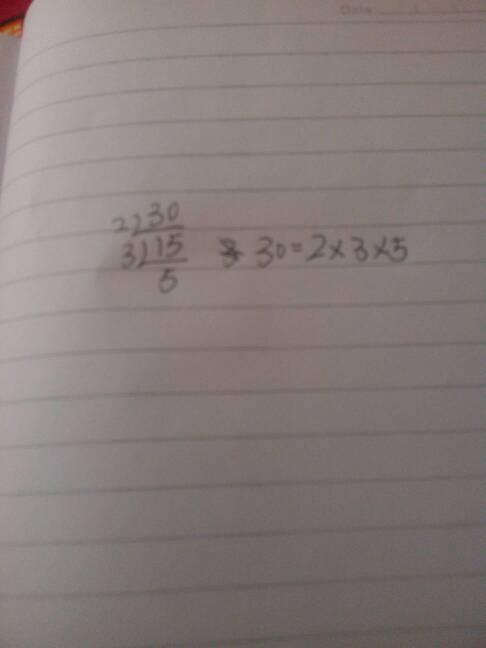 Date
2)30
3)15 30=2×3×5
5